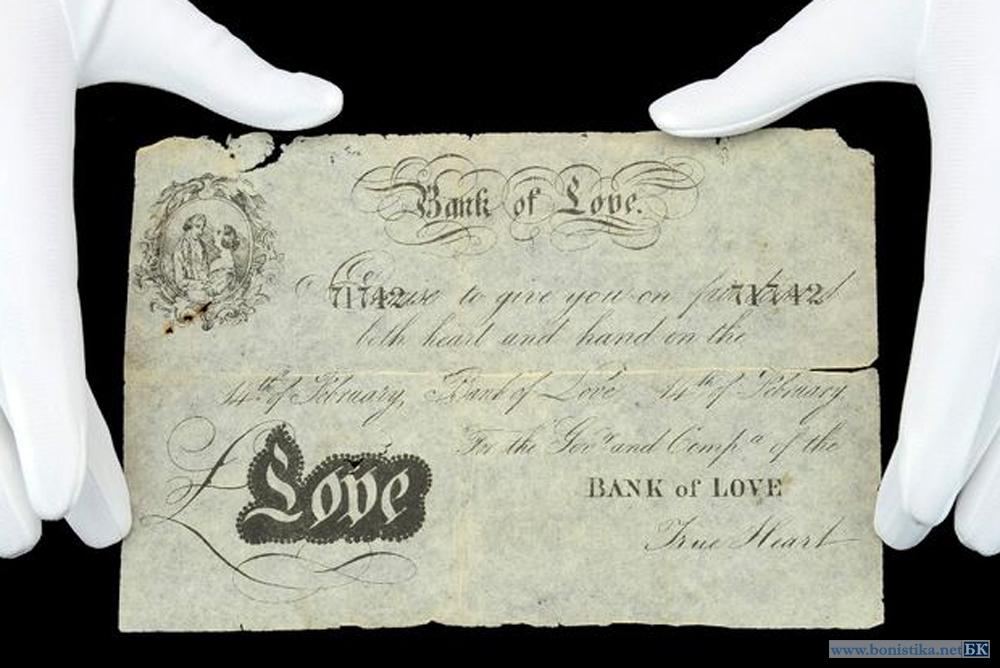 Bank of Love.
71742 Promise to give you on 71742
both heart and hand on the
14th of February, Bank of Love 14th of February
£ Love
For the Govr and Compa of the
BANK of LOVE
True Heart
www.bonistika.net БК